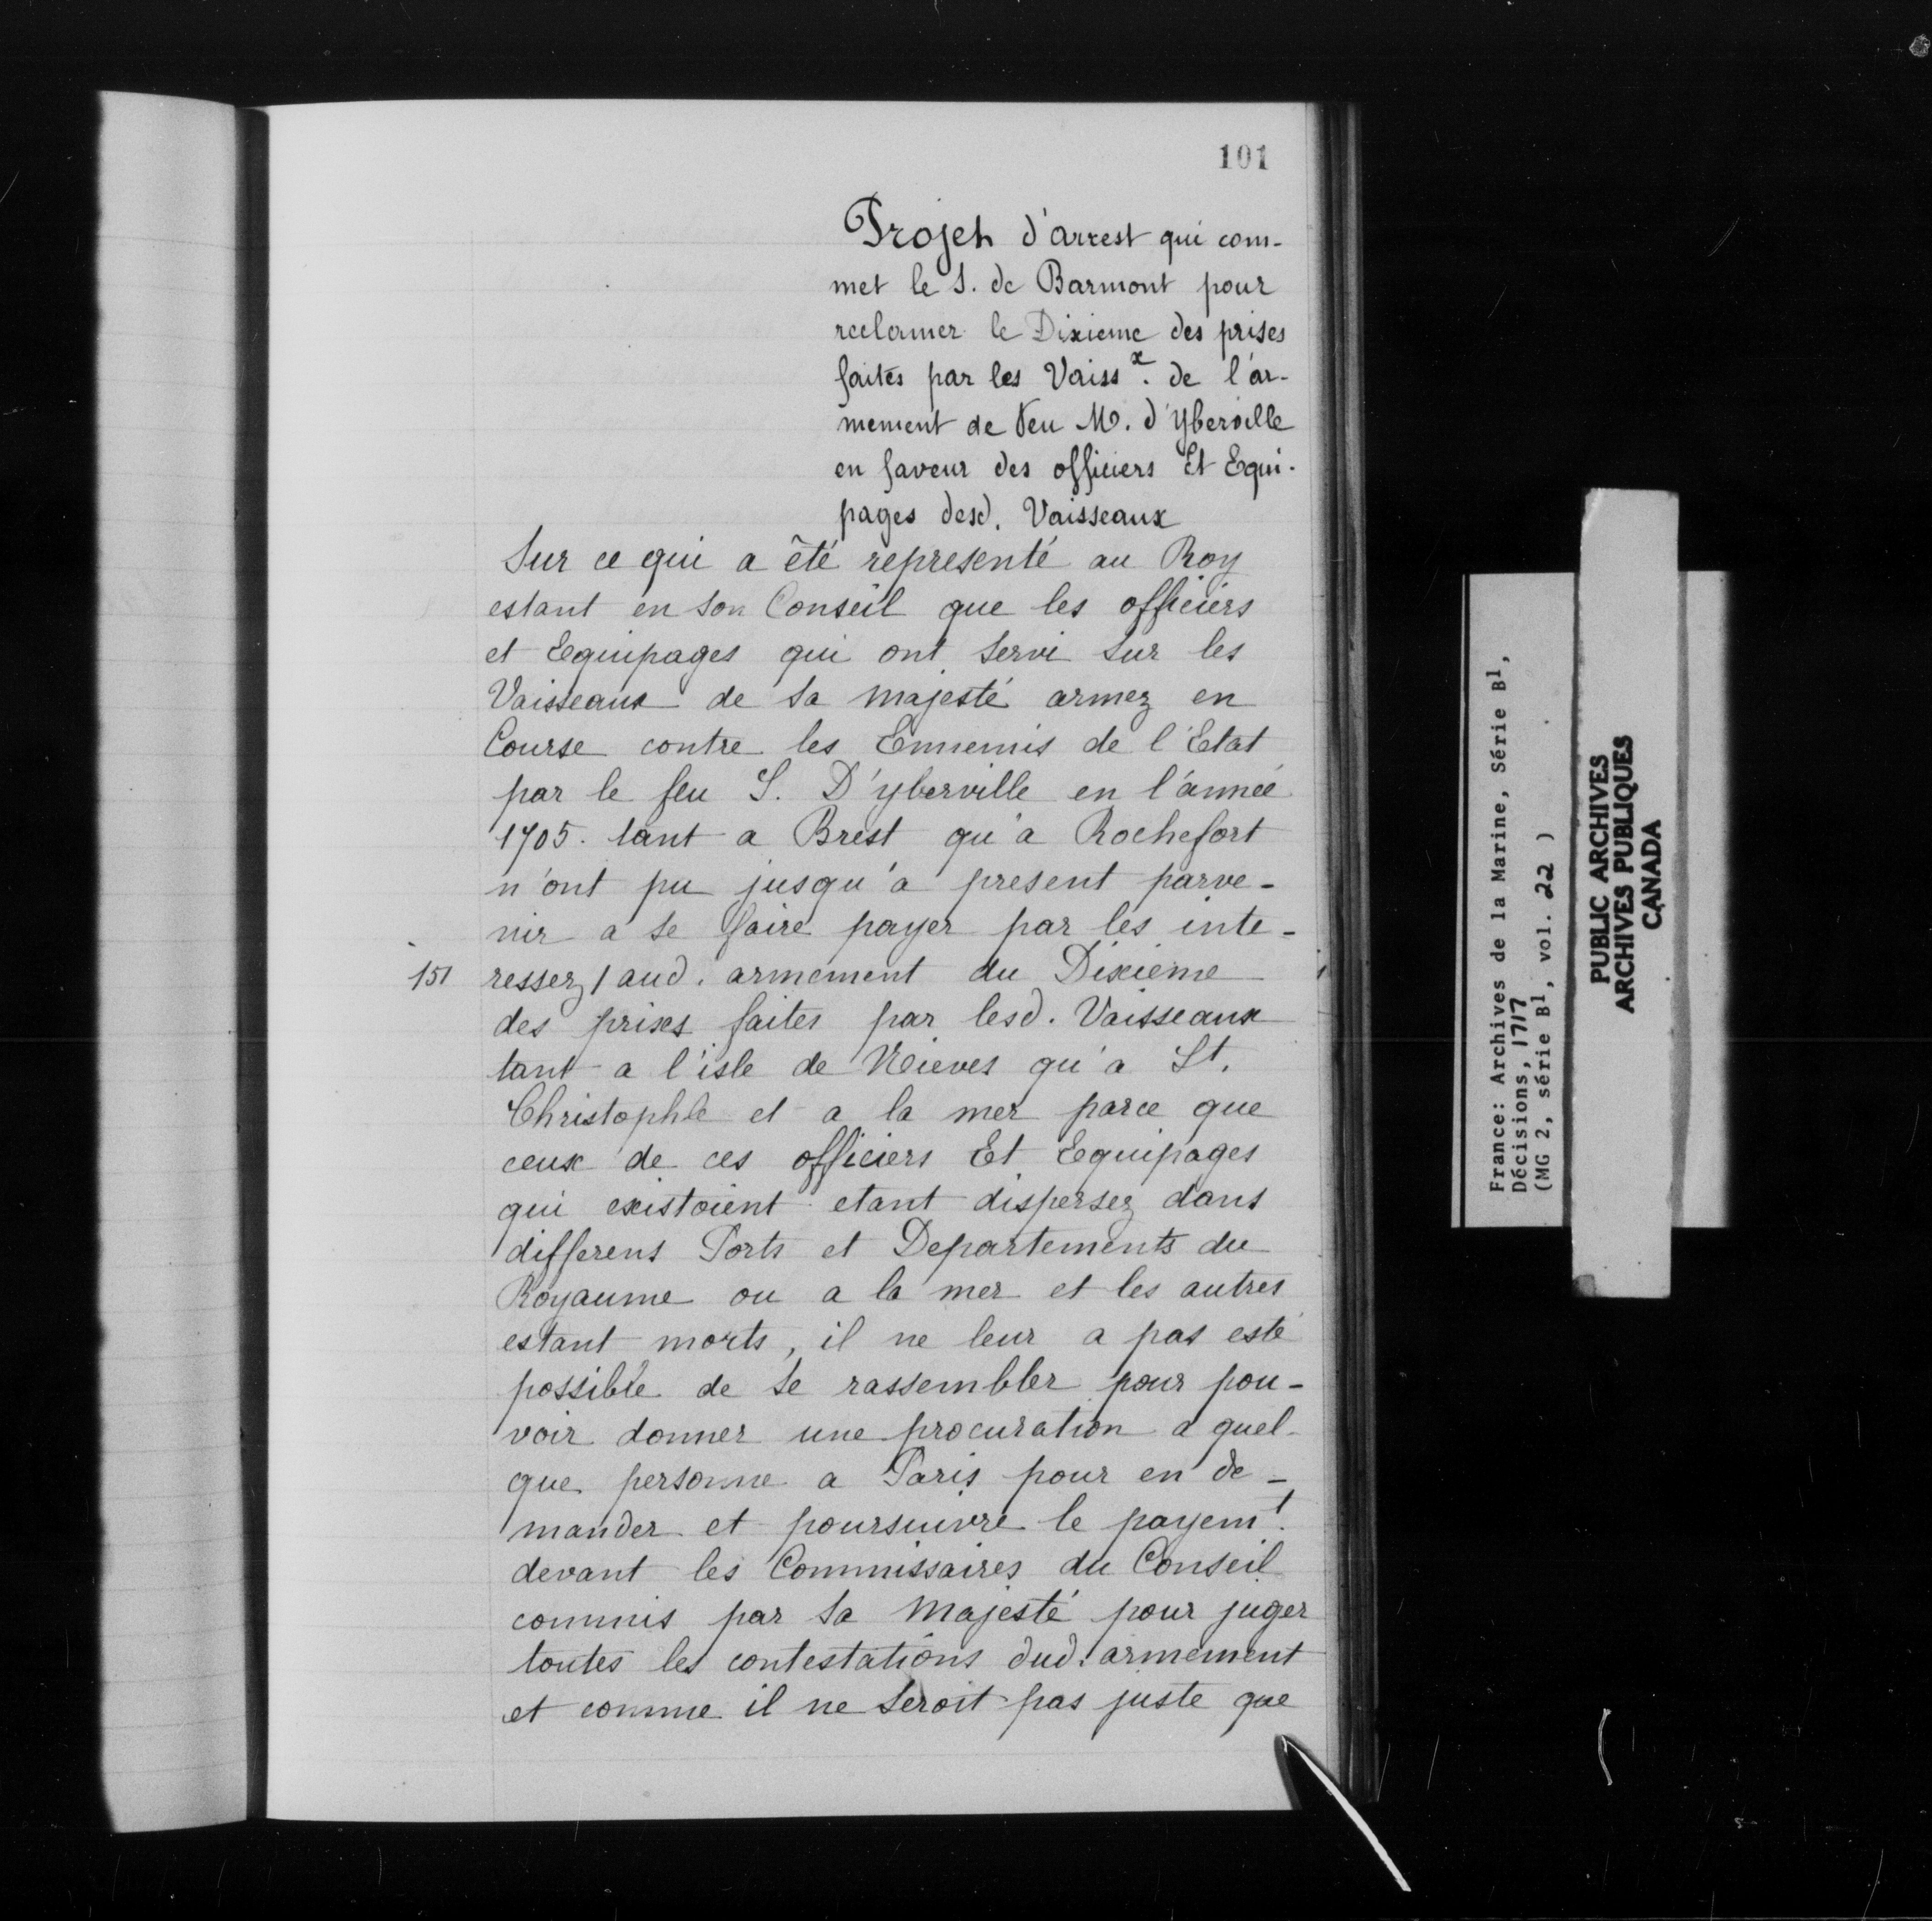 101
Projet d'arrest qui com-
met le S. de Barmont pour
reclamer le Dixieme des prises
faites par les Vaiss.x de l'ar-
mement de feu M. d'Yberville
en faveur des officiers Et Equi-
pages desd. Vaisseaux
Sur ce qui a été representé au Roy
estant en son Conseil que les officiers
et Equipages qui ont servi sur les
Vaisseaux de Sa Majesté armez en
Course contre les Ennemis de l'Etat
par le feu S. D'yberville en l'année
1705. tant a Brest qu'a Rochefort
n'ont pu jusqu'a present parve-
nir a se faire payer par les inte-
151 ressez / aud. armement du Dixieme
des prises faites par lesd. Vaisseaux
tant a l'isle de Nieves qu'a St.
Christophle et a la mer parce que
ceux de ces officiers Et Equipages
qui existoient etant dispersez dans
differens Ports et Departements du
Royaume ou a la mer et les autres
estant morts, il ne leur a pas esté
possible de se rassembler pour pou-
voir donner une procuration a quel-
que personne a Paris pour en de-
mander et poursuivre le payemt.
devant les Commissaires du Conseil
commis par Sa Majesté pour juger
toutes les contestations dud. armement
et comme il ne seroit pas juste que
France: Archives de la Marine, Série B1,
Décisions, 1717
(MG 2, série B1, vol. 22 )
PUBLIC ARCHIVES
ARCHIVES PUBLIQUES
CANADA